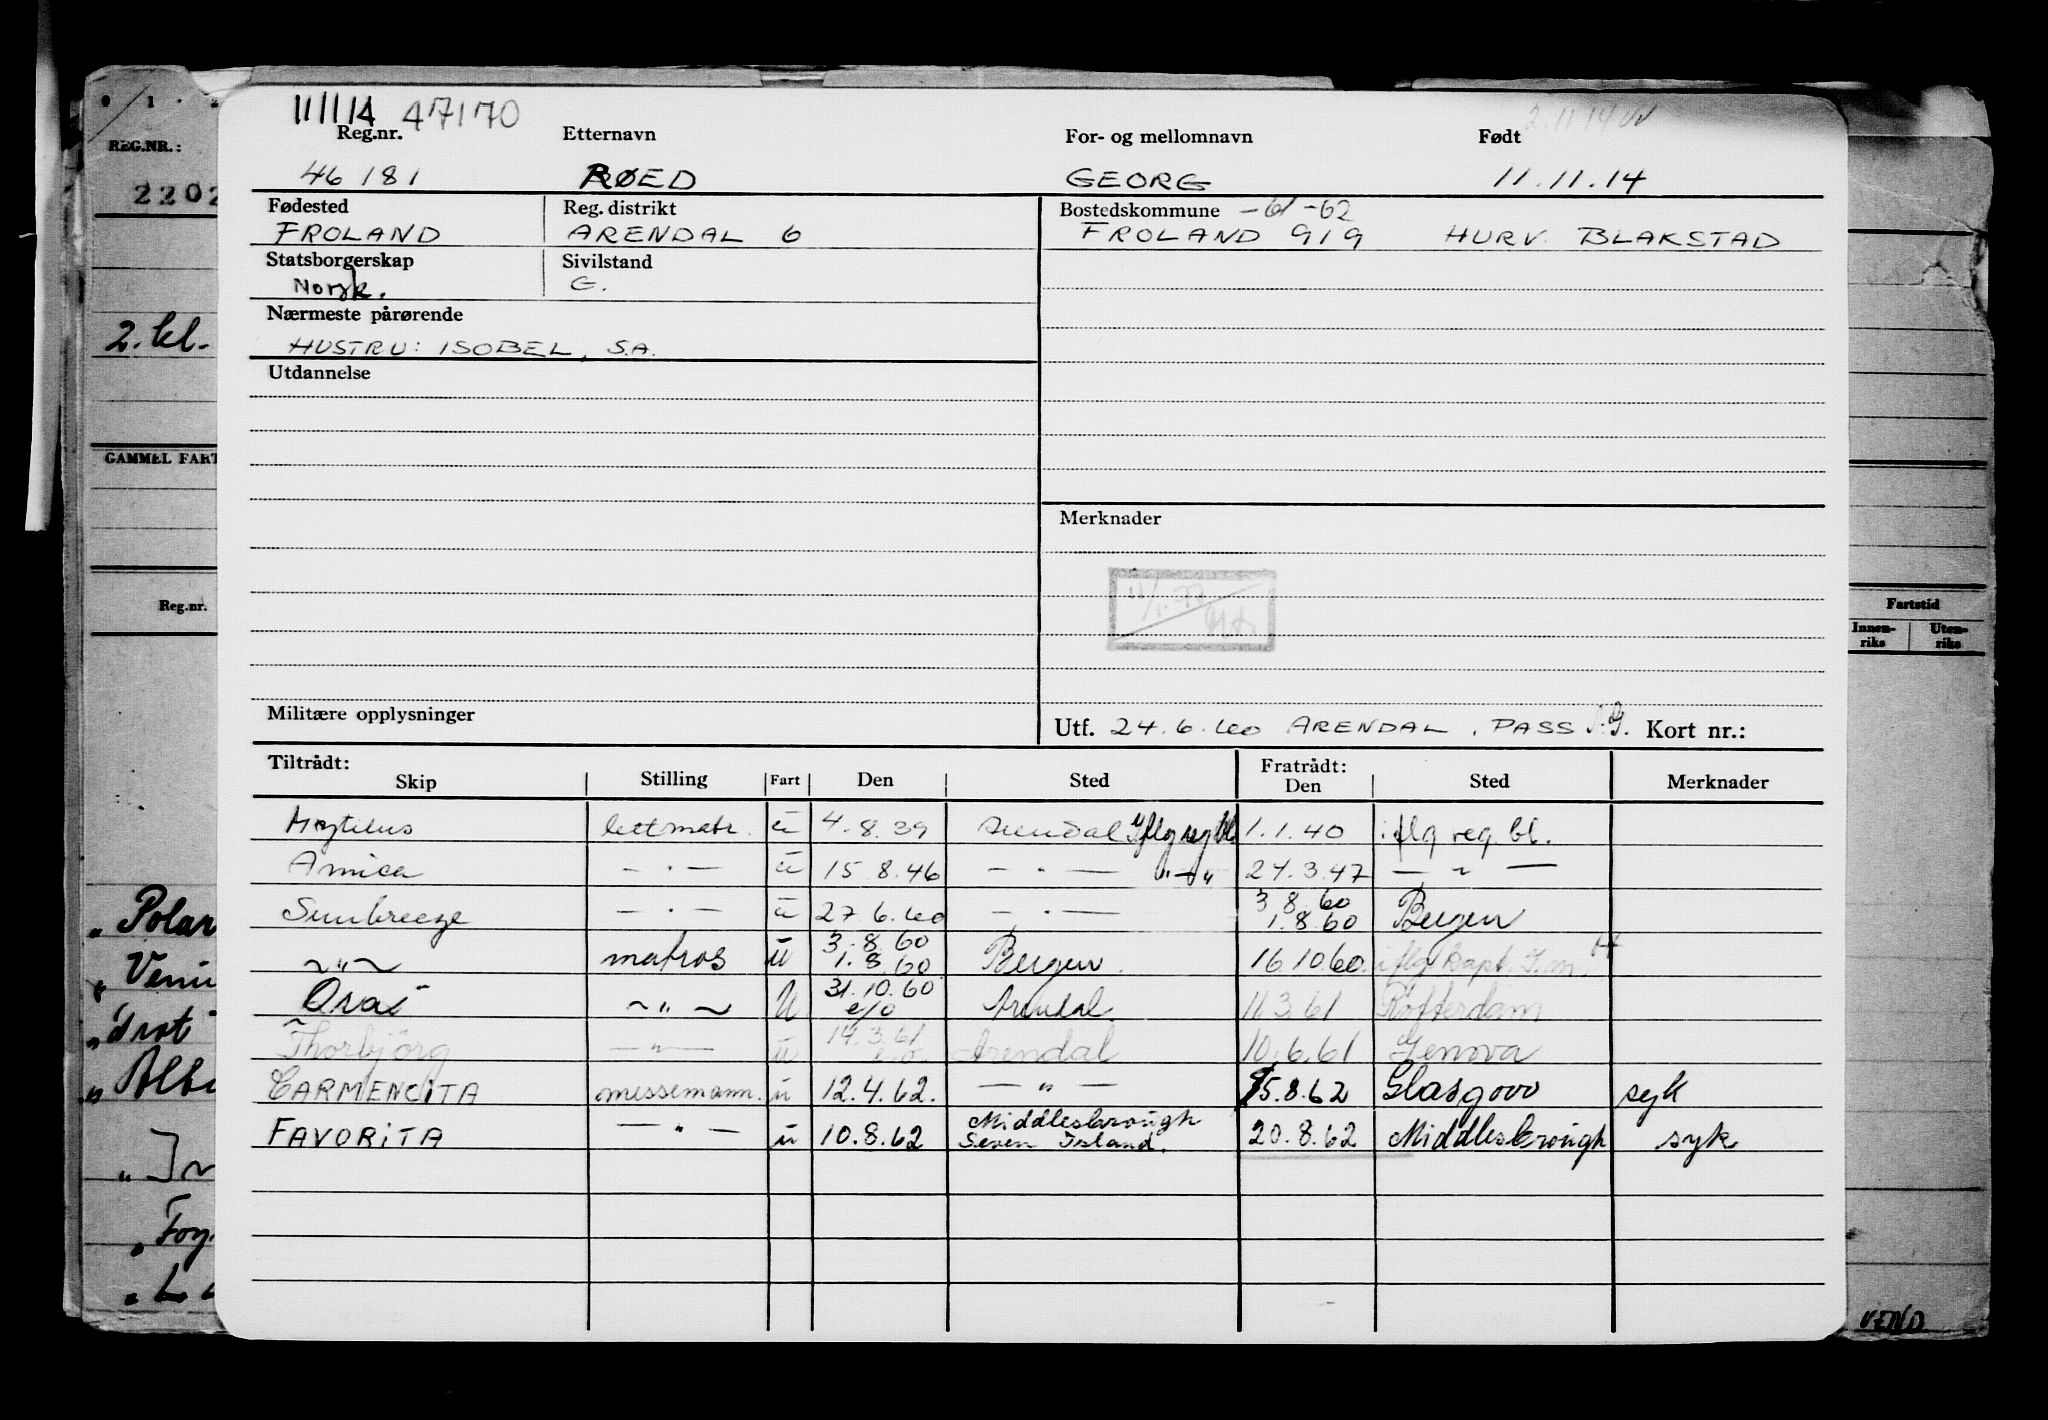 11/1/14 47170
Reg.nr. Etternavn For- og mellomnavn Født
46181 RØED GEORG 11.11.14
Fødested Reg. distrikt Bostedskommune -61-62
FROLAND ARENDAL 6 FROLAND 919 HURV. BLAKSTAD
Statsborgerskap Sivilstand
Norsk. G.
Nærmeste pårørende
HUSTRU: ISOBEL, S.A.
Utdannelse
Merknader
11/1.77
Militære opplysninger
Utf. 24.6.60 ARENDAL, PASS Kort nr.:
Tiltrådt: Fratrådt:
Skip Stilling Fart Den Sted Den Sted Merknader
lettmatr. u 4.8.39 Arendal Iflg reg bl. 1.1.40 iflg reg. bl.
Amica — . — u 15.8.46 — . — "—" 24.3.47 — " —
Sunbreeze — . — u 27.6.60 — . — 3.8.60 1.8.60 Bergen
~"~ matros u 3.8.60 1.8.60 Bergen. 16.10.60 iflg kapt.
~"~ U 31.10.60 e/o Arendal 11.3.61 Rotterdam
Thorbjörg —"— u 14.3.61 e.o. Arendal 10.6.61 Genova
CARMENCITA messemann. u 12.4.62. — " — 5.8.62 Glasgow syk
FAVORITA — " — u 10.8.62 Middlesbrough Seven Island. 20.8.62 Middlesbrough syk
REG.NR.:
2202
2. kl.
GAMMEL FART
Reg.nr.
Fartstid
Innen-riks Uten-riks
" Polar
" Venu
" Albi
VEND